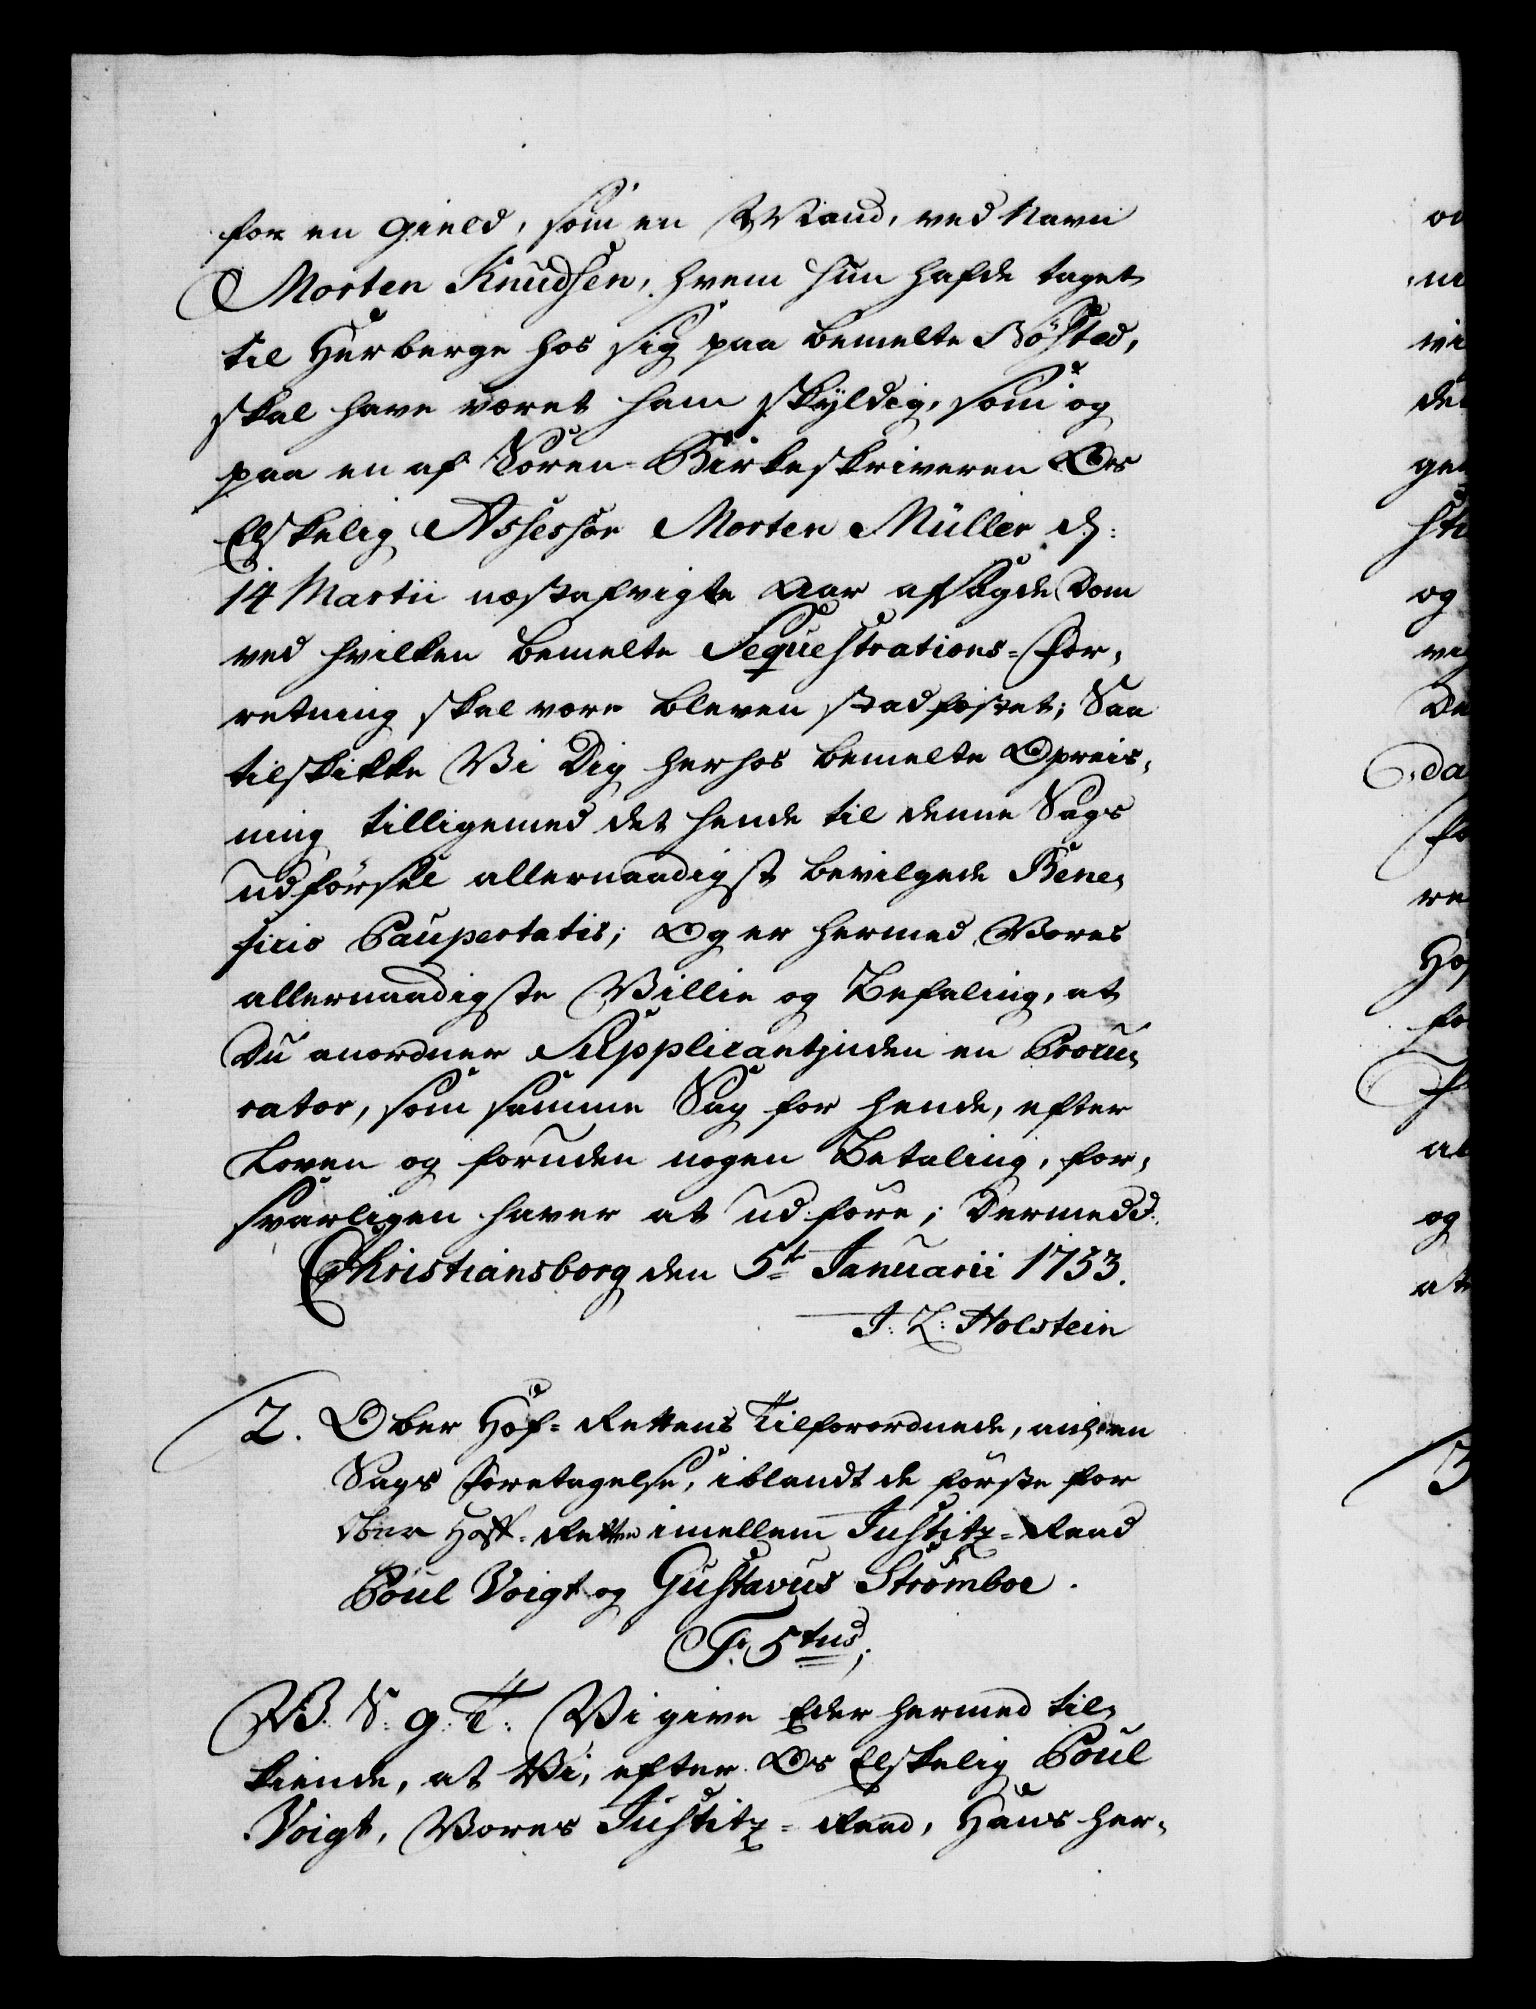 for en Gield, som en Mand, ved Navn
Morten Knudsen, hvem hun hafde taget
til Herberge hos sig paa bemelte Bösted,
skal have været ham skyldig, som og
paa en af Soren Birkeskriveren Os
Elskelig Assessor Morten Müller d:
14 Martii næstafvigte Aar afsagde Dom
ved hvilken bemelte Sequestrations-For,
retning skal være bleven stadfæstet; Saa
tilskikke Vi Dig herhos bemelte Opreis,
ning tilligemed det hende til denne Sags
udförsel allernaadigst bevilgede Bene,
ficio Paupertatis; Og er hermed Vores
allernaadigste Villie og Befaling, at
Du anordner Supplicantinden en Procu,
rator, som samme Sag for hende, efter
Loven og foruden nogen Betaling, for,
svarligen haver at udföre; Dermedd:
Christiansborg den 5t Januarii 1753.
J: L: Holstein
2. Ober Hof-Rettens Tilforordnede, anh: en
Sags Foretagelse, iblandt de förste for
Ober Hoff-Retten imellem Justitz-Raad
Poul Voigt og Gustavus Strömboe.
Fr. 5tus;
V. S: g: T: Vi give Eder hermed til,
kiende, at Vi, efter Os Elskelig Poul
Voigt, Vores Justitz-Raad, Hans her,